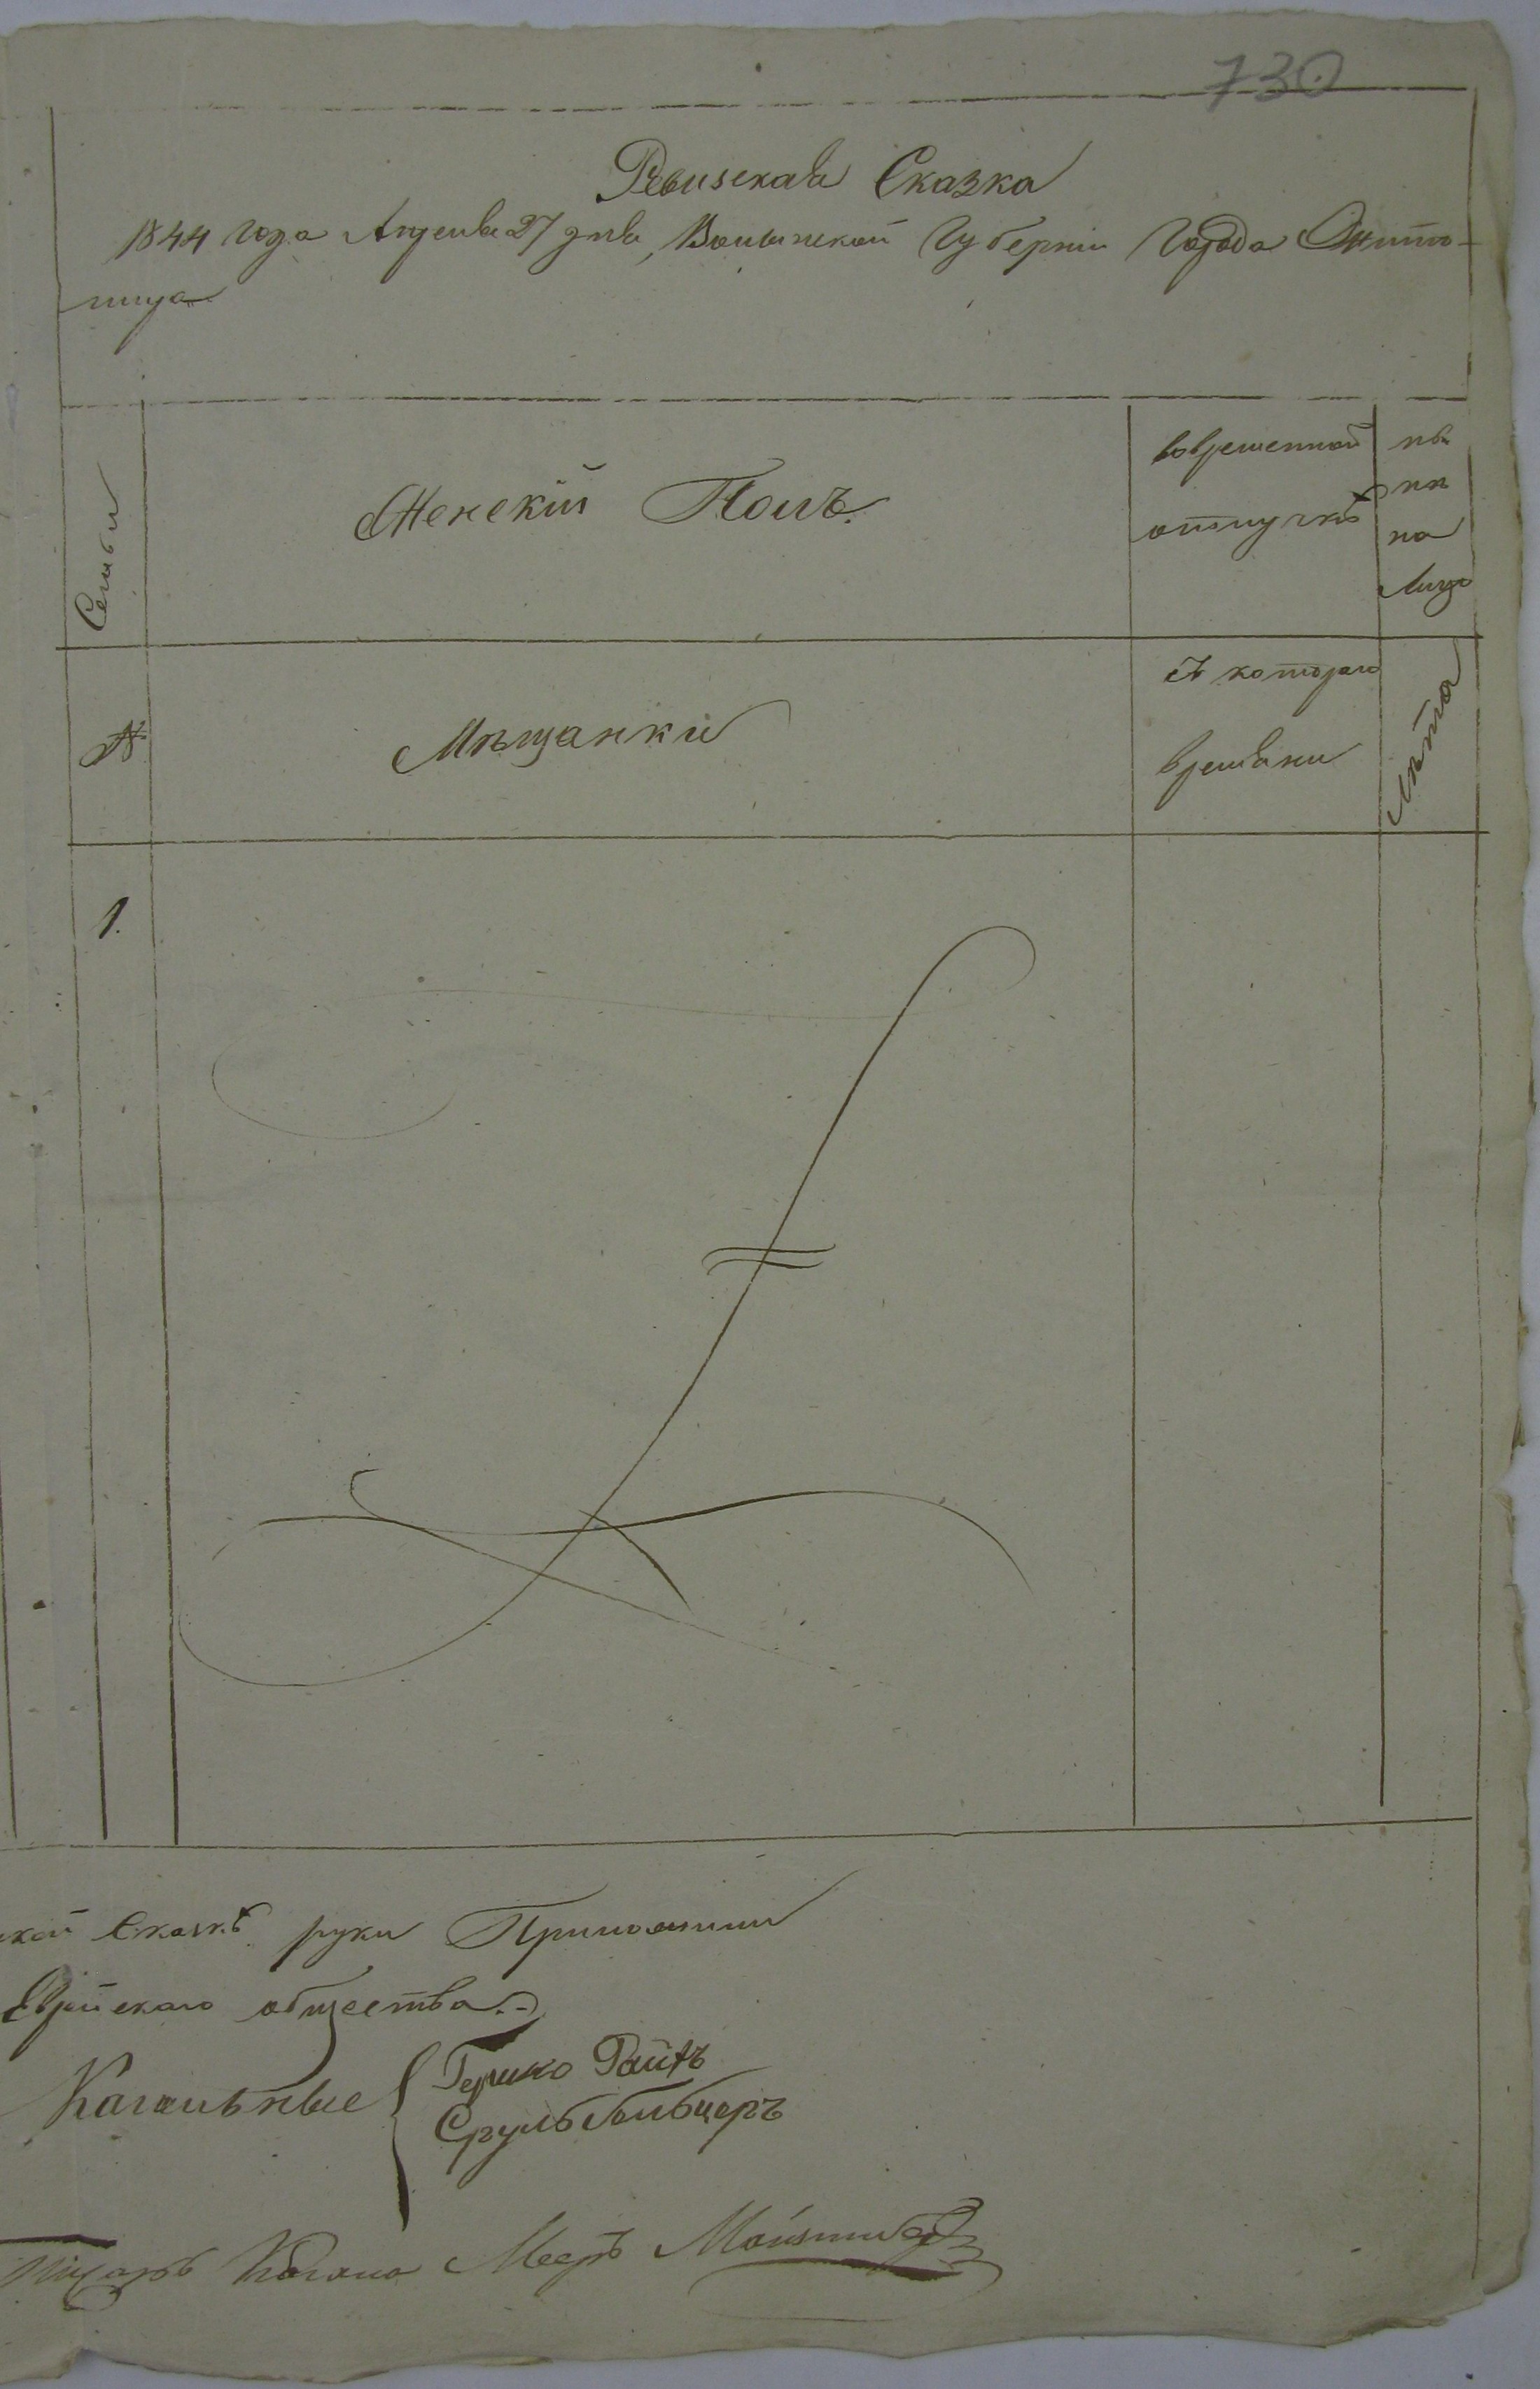 730
Ревизская Сказка
1844 года Апреля 27 дня, Волынской Губернии Города Жито-
мира
Семьи
Женский Полъ.
во временной
отлучкѣ
ны
нѣ
на
лицо
№
Мѣщанки
Съ котораго
времяни
Лѣта
1.
ской Сказкѣ руки Приложили
Еврейскаго общества.
Кагальные
Гершко
Сруль
Писарь Кагала Мееръ